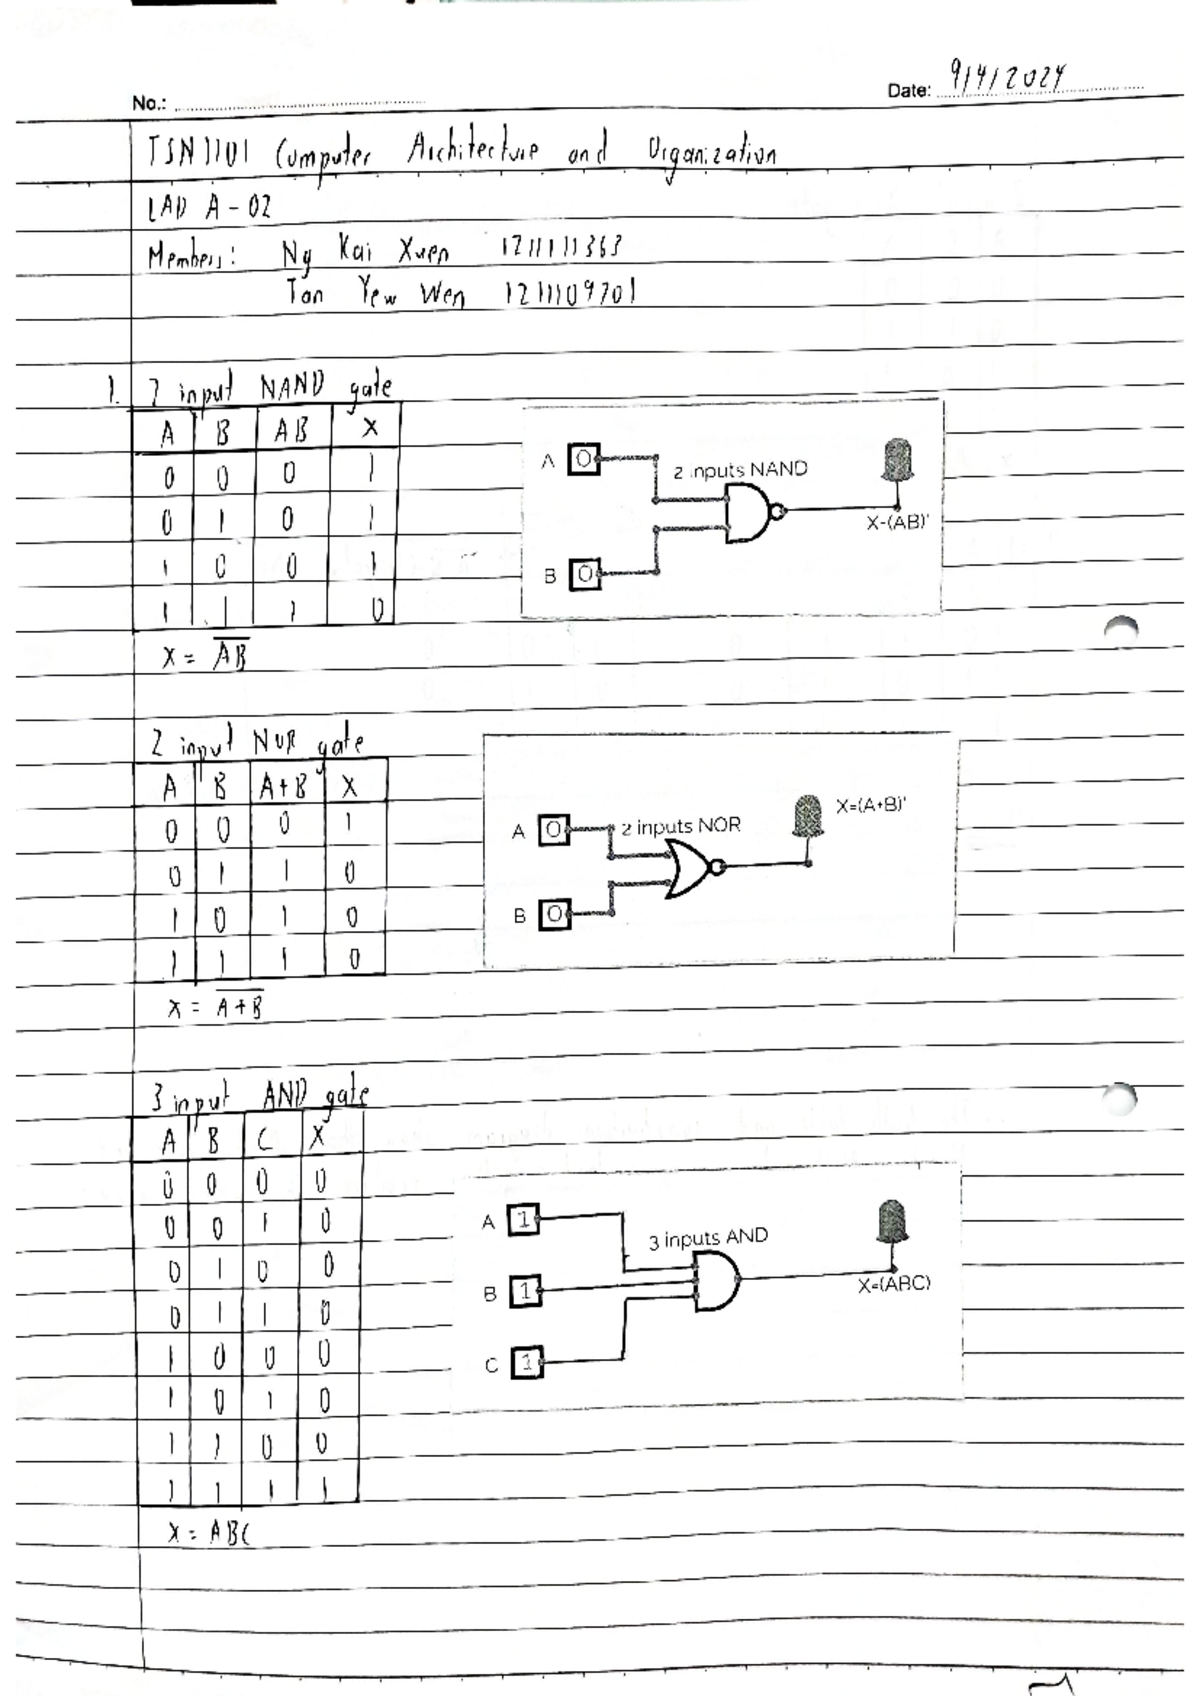 No.:
Date: 9/4/2024
TSN1101 Computer Architecture and Organization
LAB A-02
Members: Ng Kai Xuen 1211111363
Tan Yew Wen 1211109701
1. 2 input NAND gate
A B AB X
0 0 0 1
0 1 0 1
1 0 0 1
1 1 1 0
X = \overline{AB}
A 0
2 inputs NAND
X=(AB)'
B 0
2 input NOR gate
A B A+B X
0 0 0 1
0 1 1 0
1 0 1 0
1 1 1 0
X = \overline{A+B}
X=(A+B)'
A 0 2 inputs NOR
B 0
3 input AND gate
A B C X
0 0 0 0
0 0 1 0
0 1 0 0
0 1 1 0
1 0 0 0
1 0 1 0
1 1 0 0
1 1 1 1
X = ABC
A 1
3 inputs AND
B 1
X=(ABC)
C 1